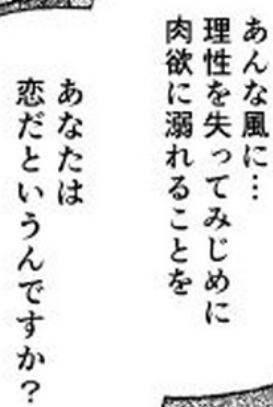 あんな風に…
理性を失ってみじめに
肉欲に溺れることを
あなたは
恋だというんですか？